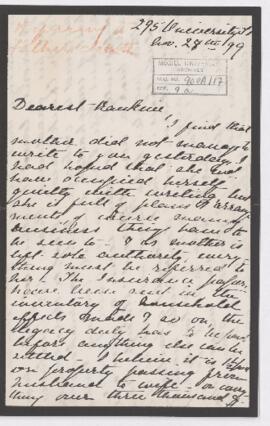 295 University St
Nov. 27th /99
McGILL UNIVERSITY
ARCHIVES
ACC. NO. 
REF. 9a
Dearest Rankine
I find that
mother did not manage to
write to you yesterday. I
had hoped that she had
have occupied herself
quietly with writing but
she is full of plans & arrange
ments & of course many
business things have to
be seen to - & as mother is
left sole authority every
thing must be referred to
her. The Insurance papers
have been sent in, an
inventory of household
effects made & so on, the
legacy duty has to be paid
before anything else can be
settled - I believe it is
on property passing from
husband to wife - on any
thing over three thousand $